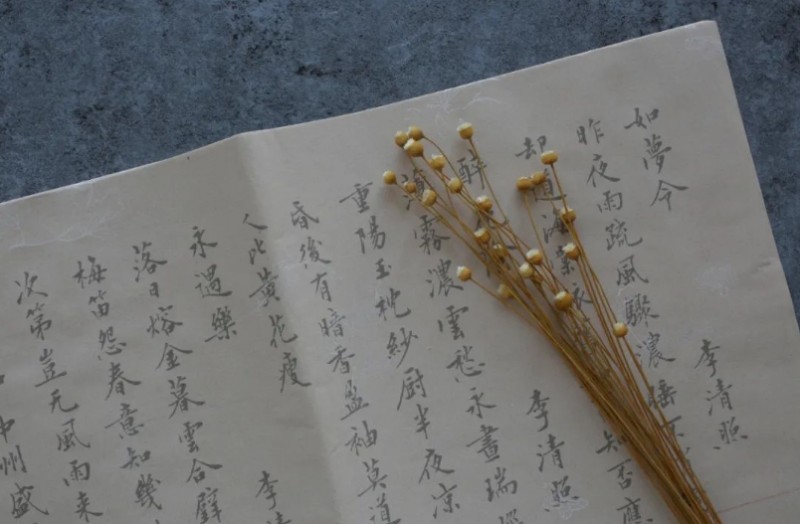 如夢令 李清照
昨夜雨疏風驟濃睡不
却道海棠依 知否應
醉 李清照
霧濃雲愁永晝瑞
重陽玉枕紗厨半夜凉
昏後有暗香盈袖莫道
人比黄花瘦
永遇樂 李清
落日熔金暮雲合璧
梅笛怨春意知幾
次第豈无風雨来
中州盛